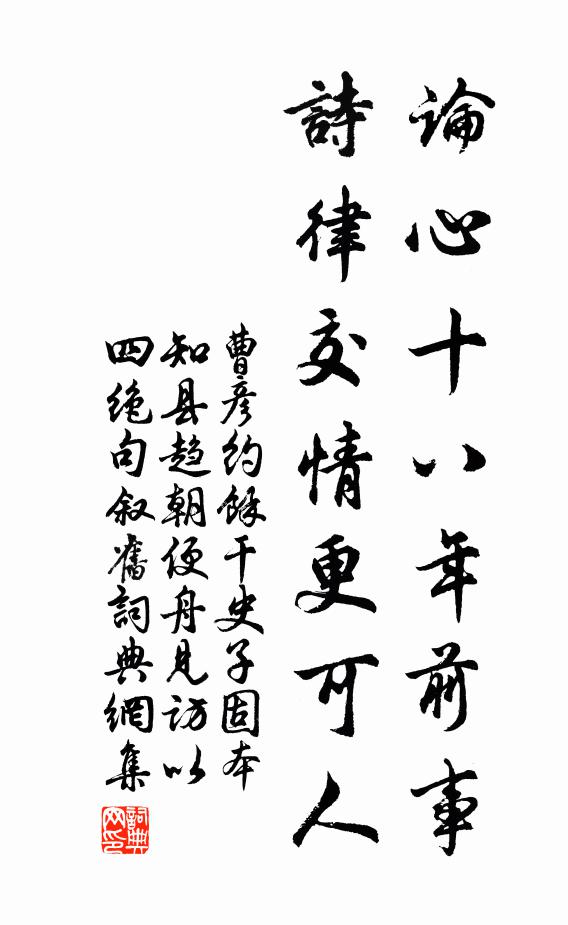 論心十八年前事
詩律交情更可人
曹彦約餘干史子固本
知县趋朝便舟見訪以
四絶句叙舊詞典網集
詞典
网印